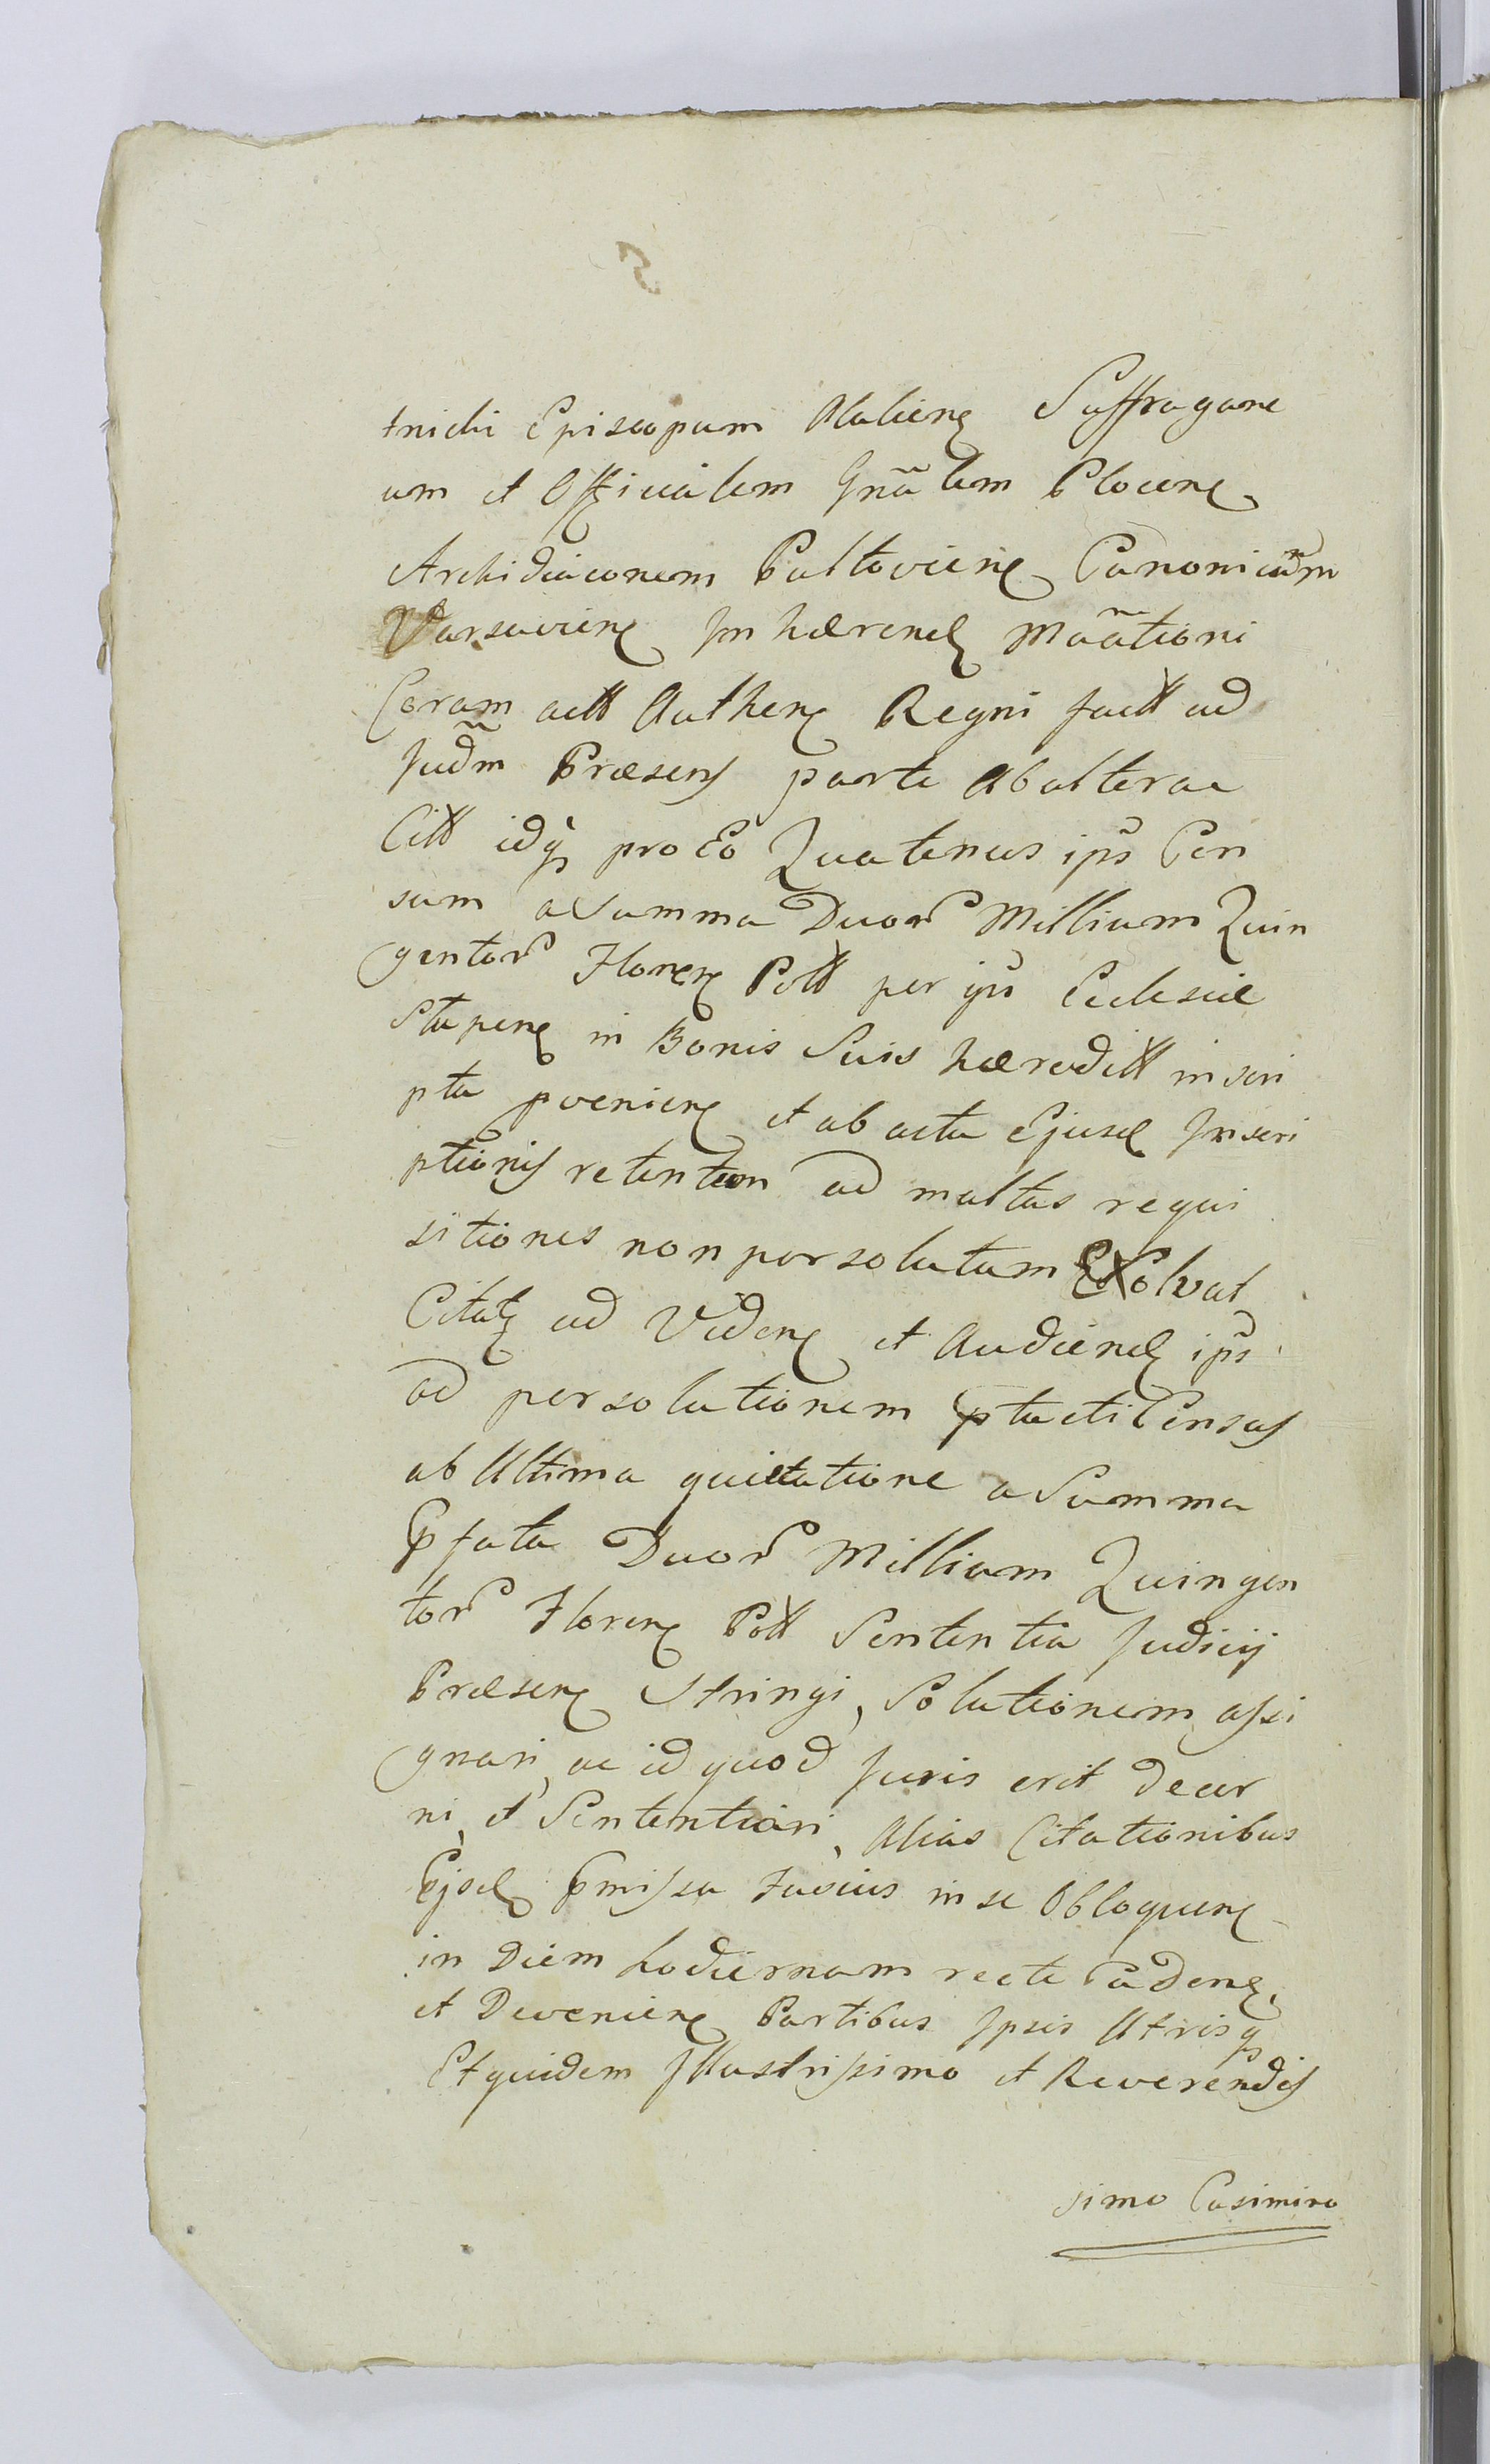 tnicki Episcopum Abliens Suffragane
um et Officialem Gnãlem Plocens
Archidiaconem Pultoviens Canonicum
Varsaviens Inhærend Mãationi
Coram actt Authen Regni factt ad
Judm̃ Præsens parte Abaltera
Citt idq pro Eo Quatenus ips Cen
sum a Summa Duor Millium Quin
gentor Floren Poll per ips Ecclesiæ
in Bonis Suis hæreditt inscri
pta pvenien et ab acta Ejusd Inscri
ptionis retentum ad multas requi
sitiones non persolutum Exolvat
Citat ad Viden et Audiend ips
ad persolutionem ptacti Census
ab Ultima quietatione a Summa
pfata Duor Millium Quingen
tor Floren Poll Sententia Judicij
Præsen Stringi, Solutionem assi
gnari, ac id quod Juris erit decer
ni, et Sententiari, Alias Citationibus
Ejsd pmissa fusius in se Obloquen
in Diem hodiernam recte Caden,
et Devenien Partibus Ipsis Utrisq
Et quidem Illustrissimo et Reverendis
simo Casimiro